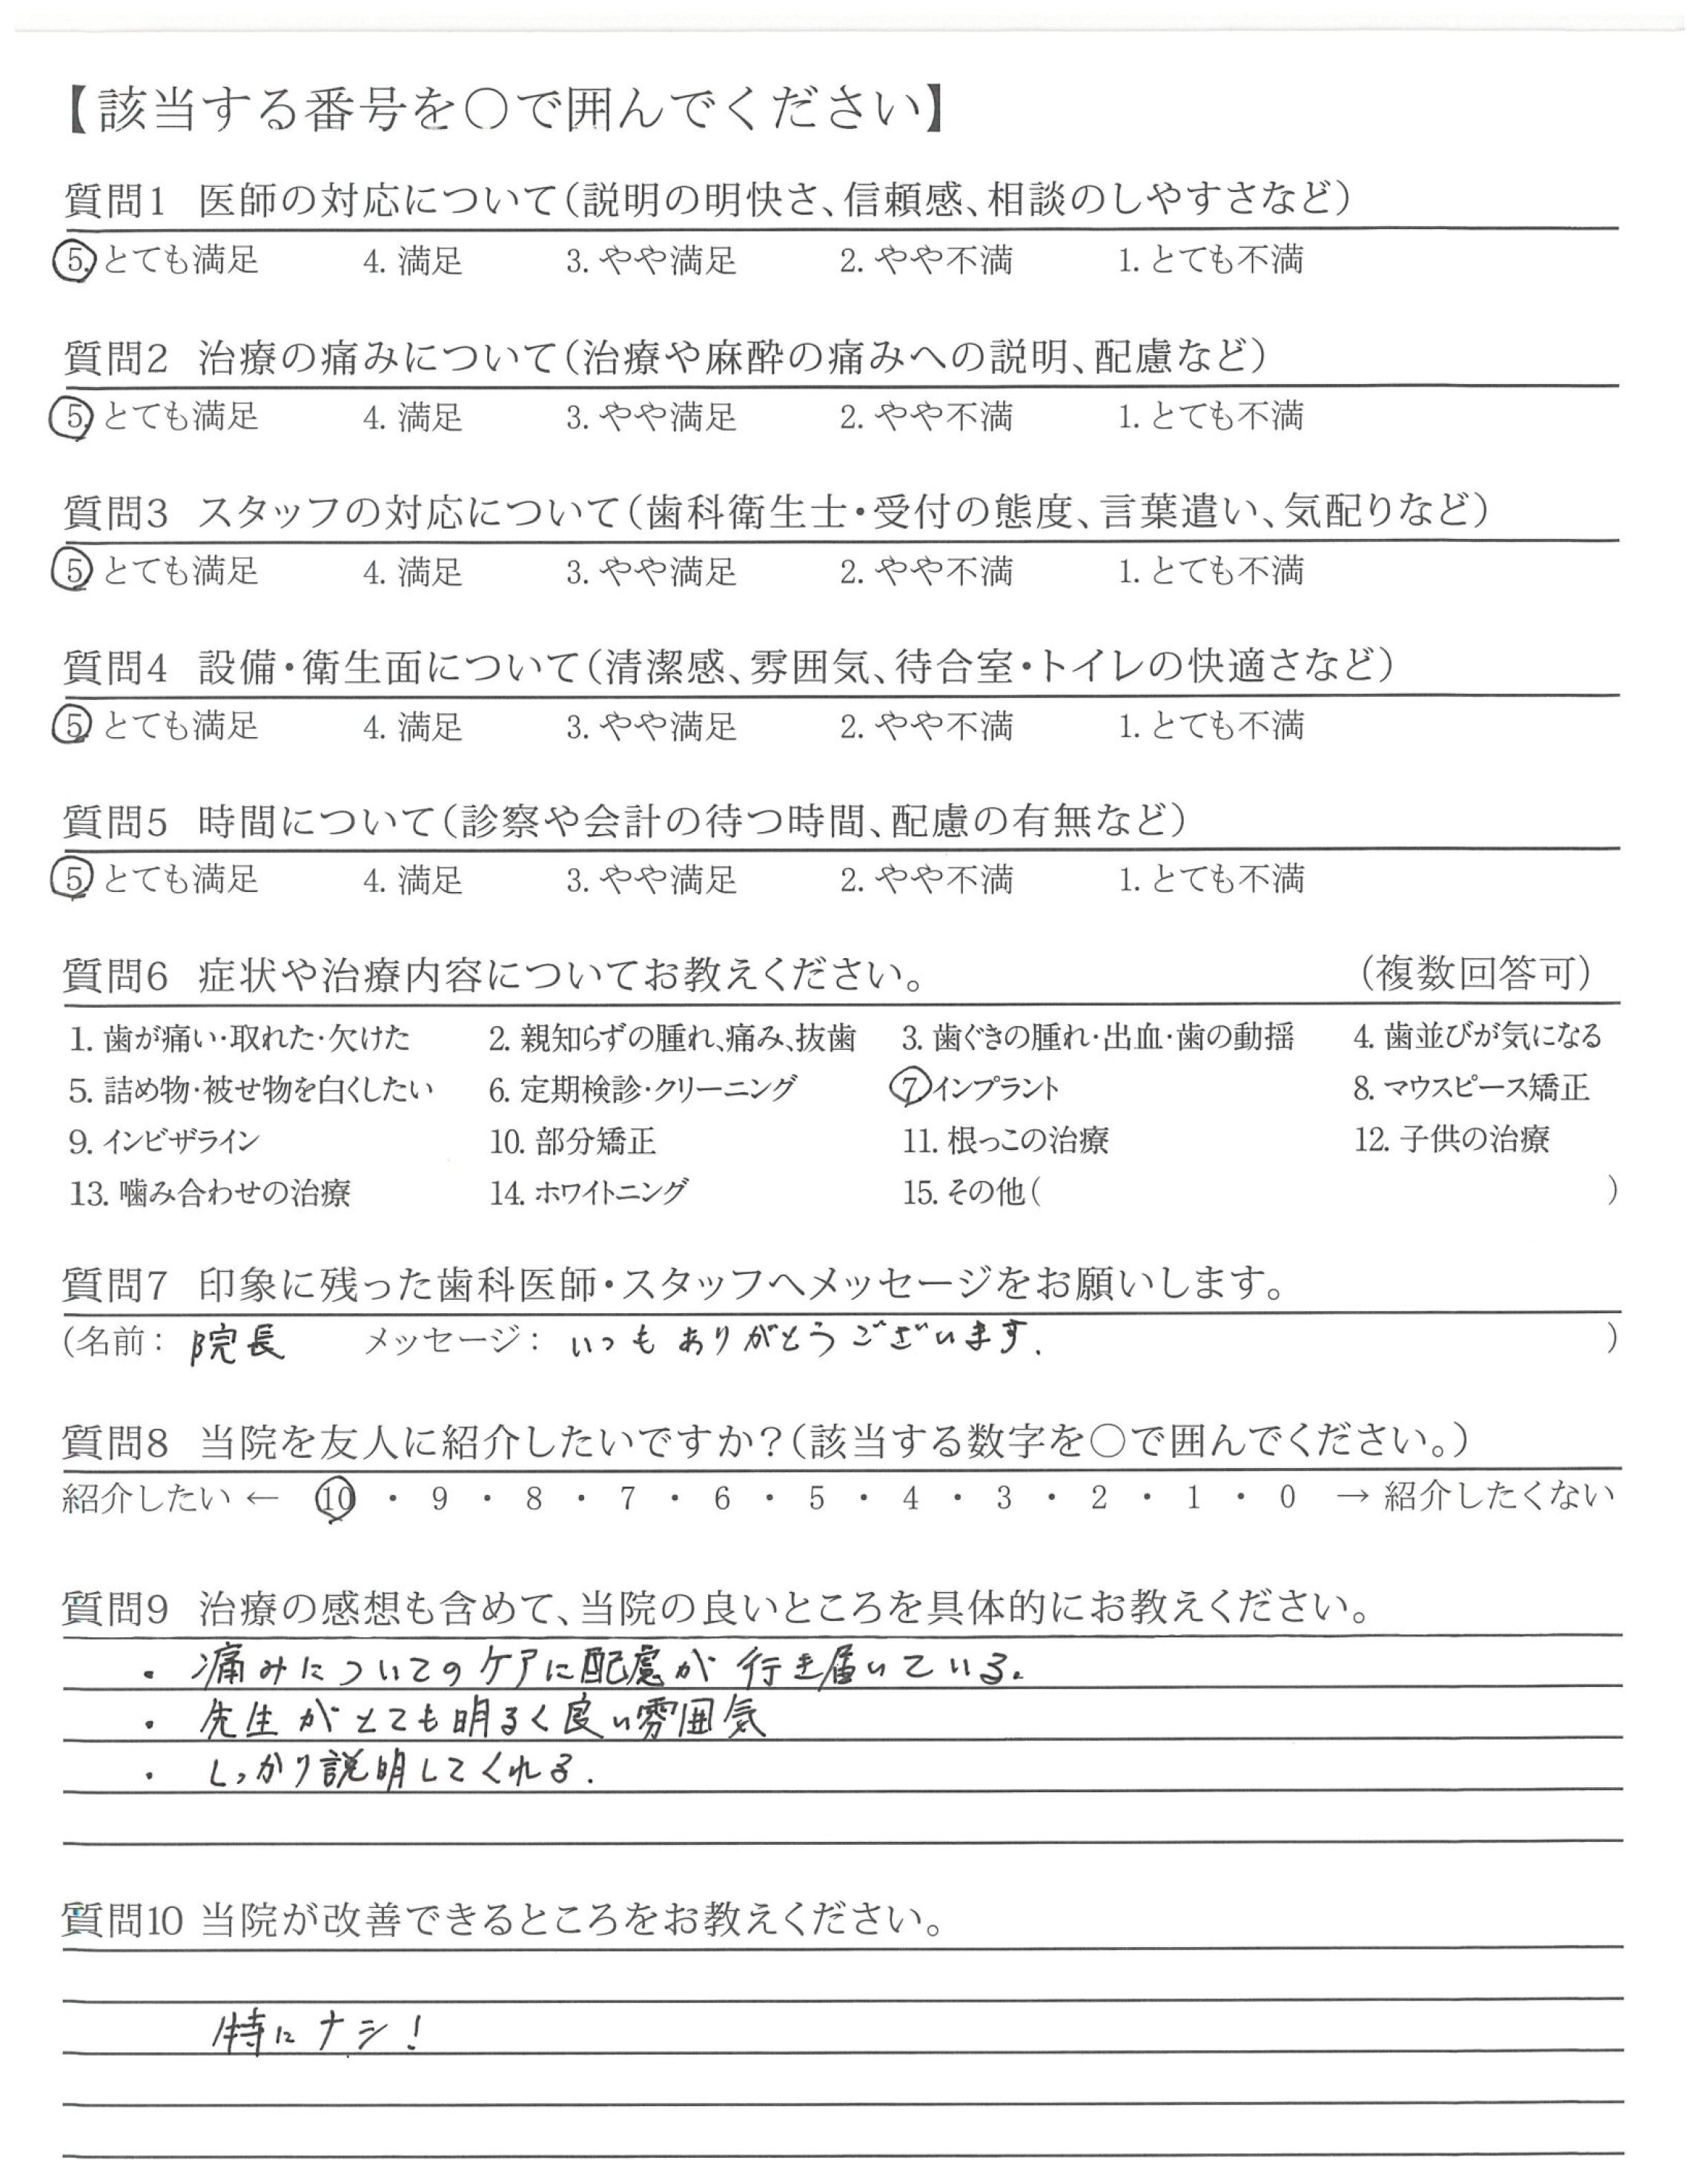 【該当する番号を○で囲んでください】
質問1 医師の対応について(説明の明快さ、信頼感、相談のしやすさなど)
5. とても満足 4. 満足 3. やや満足 2. やや不満 1. とても不満
質問2 治療の痛みについて(治療や麻酔の痛みへの説明、配慮など)
5. とても満足 4. 満足 3. やや満足 2. やや不満 1. とても不満
質問3 スタッフの対応について(歯科衛生士・受付の態度、言葉遣い、気配りなど)
5. とても満足 4. 満足 3. やや満足 2. やや不満 1. とても不満
質問4 設備・衛生面について(清潔感、雰囲気、待合室・トイレの快適さなど)
5. とても満足 4. 満足 3. やや満足 2. やや不満 1. とても不満
質問5 時間について(診察や会計の待つ時間、配慮の有無など)
5. とても満足 4. 満足 3. やや満足 2. やや不満 1. とても不満
質問6 症状や治療内容についてお教えください。 (複数回答可)
1. 歯が痛い・取れた・欠けた 2. 親知らずの腫れ、痛み、抜歯 3. 歯ぐきの腫れ・出血・歯の動揺 4. 歯並びが気になる
5. 詰め物・被せ物を白くしたい 6. 定期検診・クリーニング 7. インプラント 8. マウスピース矯正
9. インビザライン 10. 部分矯正 11. 根っこの治療 12. 子供の治療
13. 噛み合わせの治療 14. ホワイトニング 15. その他( )
質問7 印象に残った歯科医師・スタッフへメッセージをお願いします。
(名前: 院長 メッセージ: いつもありがとうございます. )
質問8 当院を友人に紹介したいですか?(該当する数字を○で囲んでください。)
紹介したい ← 10 ・ 9 ・ 8 ・ 7 ・ 6 ・ 5 ・ 4 ・ 3 ・ 2 ・ 1 ・ 0 → 紹介したくない
質問9 治療の感想も含めて、当院の良いところを具体的にお教えください。
・ 痛みについてのケアに配慮が行き届いている.
・ 先生がとても明るく良い雰囲気
・ しっかり説明してくれる.
質問10 当院が改善できるところをお教えください。
特にナシ!